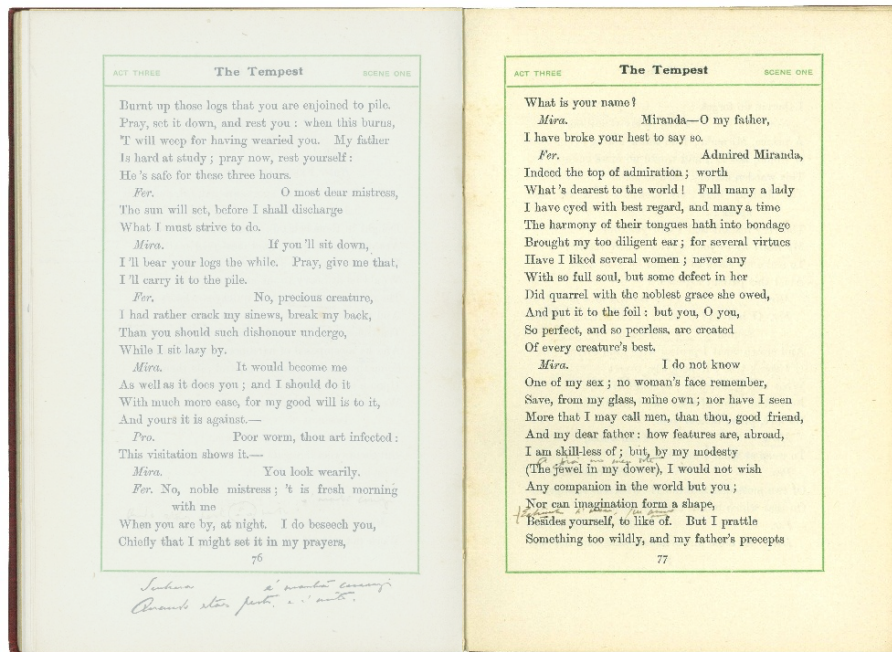 ACT THREE The Tempest SCENE ONE
Burnt up those logs that you are enjoined to pile.
Pray, set it down, and rest you : when this burns,
'T will weep for having wearied you. My father
Is hard at study ; pray now, rest yourself :
He 's safe for these three hours.
Fer. O most dear mistress,
The sun will set, before I shall discharge
What I must strive to do.
Mira. If you 'll sit down,
I 'll bear your logs the while. Pray, give me that,
I 'll carry it to the pile.
Fer. No, precious creature,
I had rather crack my sinews, break my back,
Than you should such dishonour undergo,
While I sit lazy by.
Mira. It would become me
As well as it does you ; and I should do it
With much more ease, for my good will is to it,
And yours it is against.—
Pro. Poor worm, thou art infected :
This visitation shows it.—
Mira. You look wearily.
Fer. No, noble mistress ; 't is fresh morning
with me
When you are by, at night. I do beseech you,
Chiefly that I might set it in my prayers,
76
Senhora é manhã
Quando estas perto, noite.
ACT THREE The Tempest SCENE ONE
What is your name?
Mira. Miranda—O my father,
I have broke your hest to say so.
Fer. Admired Miranda,
Indeed the top of admiration ; worth
What 's dearest to the world ! Full many a lady
I have eyed with best regard, and many a time
The harmony of their tongues hath into bondage
Brought my too diligent ear ; for several virtues
Have I liked several women ; never any
With so full soul, but some defect in her
Did quarrel with the noblest grace she owed,
And put it to the foil : but you, O you,
So perfect, and so peerless, are created
Of every creature's best.
Mira. I do not know
One of my sex ; no woman's face remember,
Save, from my glass, mine own ; nor have I seen
More that I may call men, than thou, good friend,
And my dear father : how features are, abroad,
I am skill-less of ; but, by my modesty
(The jewel in my dower), I would not wish
Any companion in the world but you ;
Nor can imagination form a shape,
Besides yourself, to like of. But I prattle
Something too wildly, and my father's precepts
77